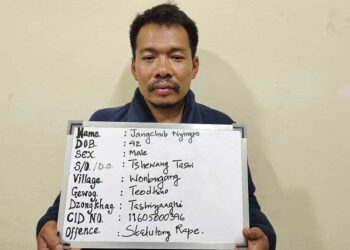 Name. : Jangchub Nyingpo
DOB. : 42
SEX. : Male
S/O./D.O. : Tshewang Tashi
Village. : Wonbugang
Gewog. :
Dzongkhag. : Tashiyangtse
CID NO. : 11605000396
Offence. : Statutory Rape.